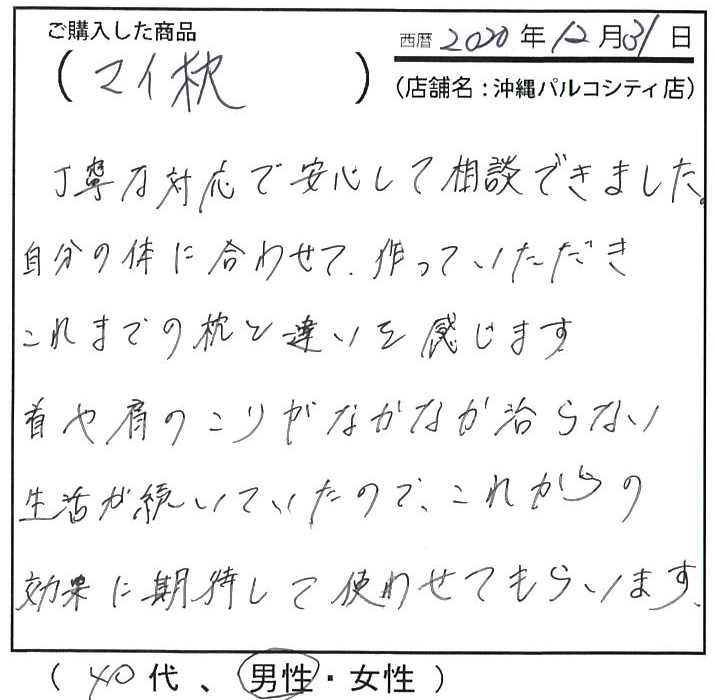 ご購入した商品
西暦 2020 年 12 月 31 日
(マイ枕)
(店舗名:沖縄パルコシティ店)
丁寧な対応で安心して相談できました。
自分の体に合わせて、作っていただき
これまでの枕と違いを感じます
首や肩のこりがなかなか治らない
生活が続いていたので、これからの
効果に期待して使わせてもらいます。
(40代、男性・女性)